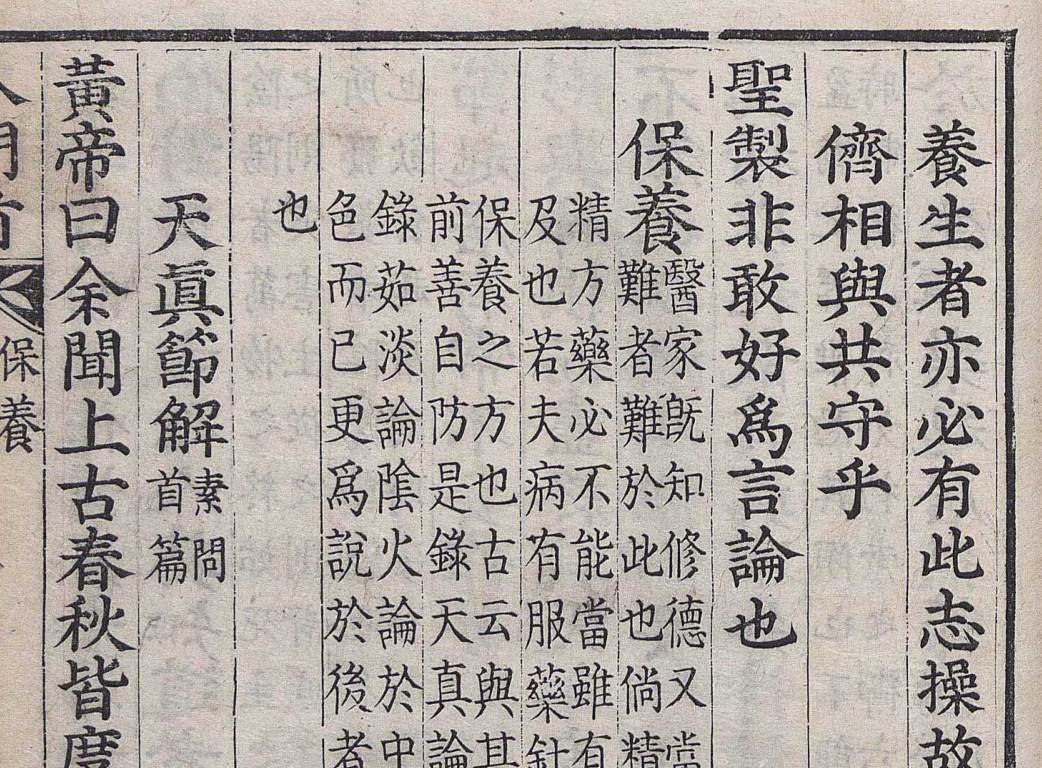 養生者亦必有此志操故
儕相與共守乎
聖製非敢好爲言論也
保養
醫家旣知修德又當
難者難於此也倘精
精方藥必不能當雖有
及也若夫病有服藥針
保養之方也古云與其
前善自防是錄天真論
錄茹淡論陰火論於中
色而已更爲說於後者
也
天眞節解
素問
首篇
黃帝曰余聞上古春秋皆度
保養